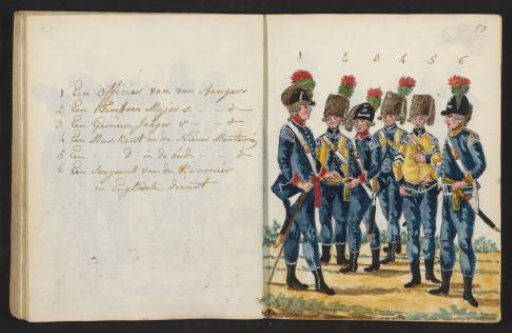 1 Een officier van van Aangers
2 Een Tamboer Major s - - - d -
3 Een Gemein Jaeger s - - - d -
4 Een Musikent in de Nieuw Monteering
5 Een - - d in de oude - - - d -
6 Een Sergeant van de Kanonier
in Englische dienst
1 2 3 4 5 6
50